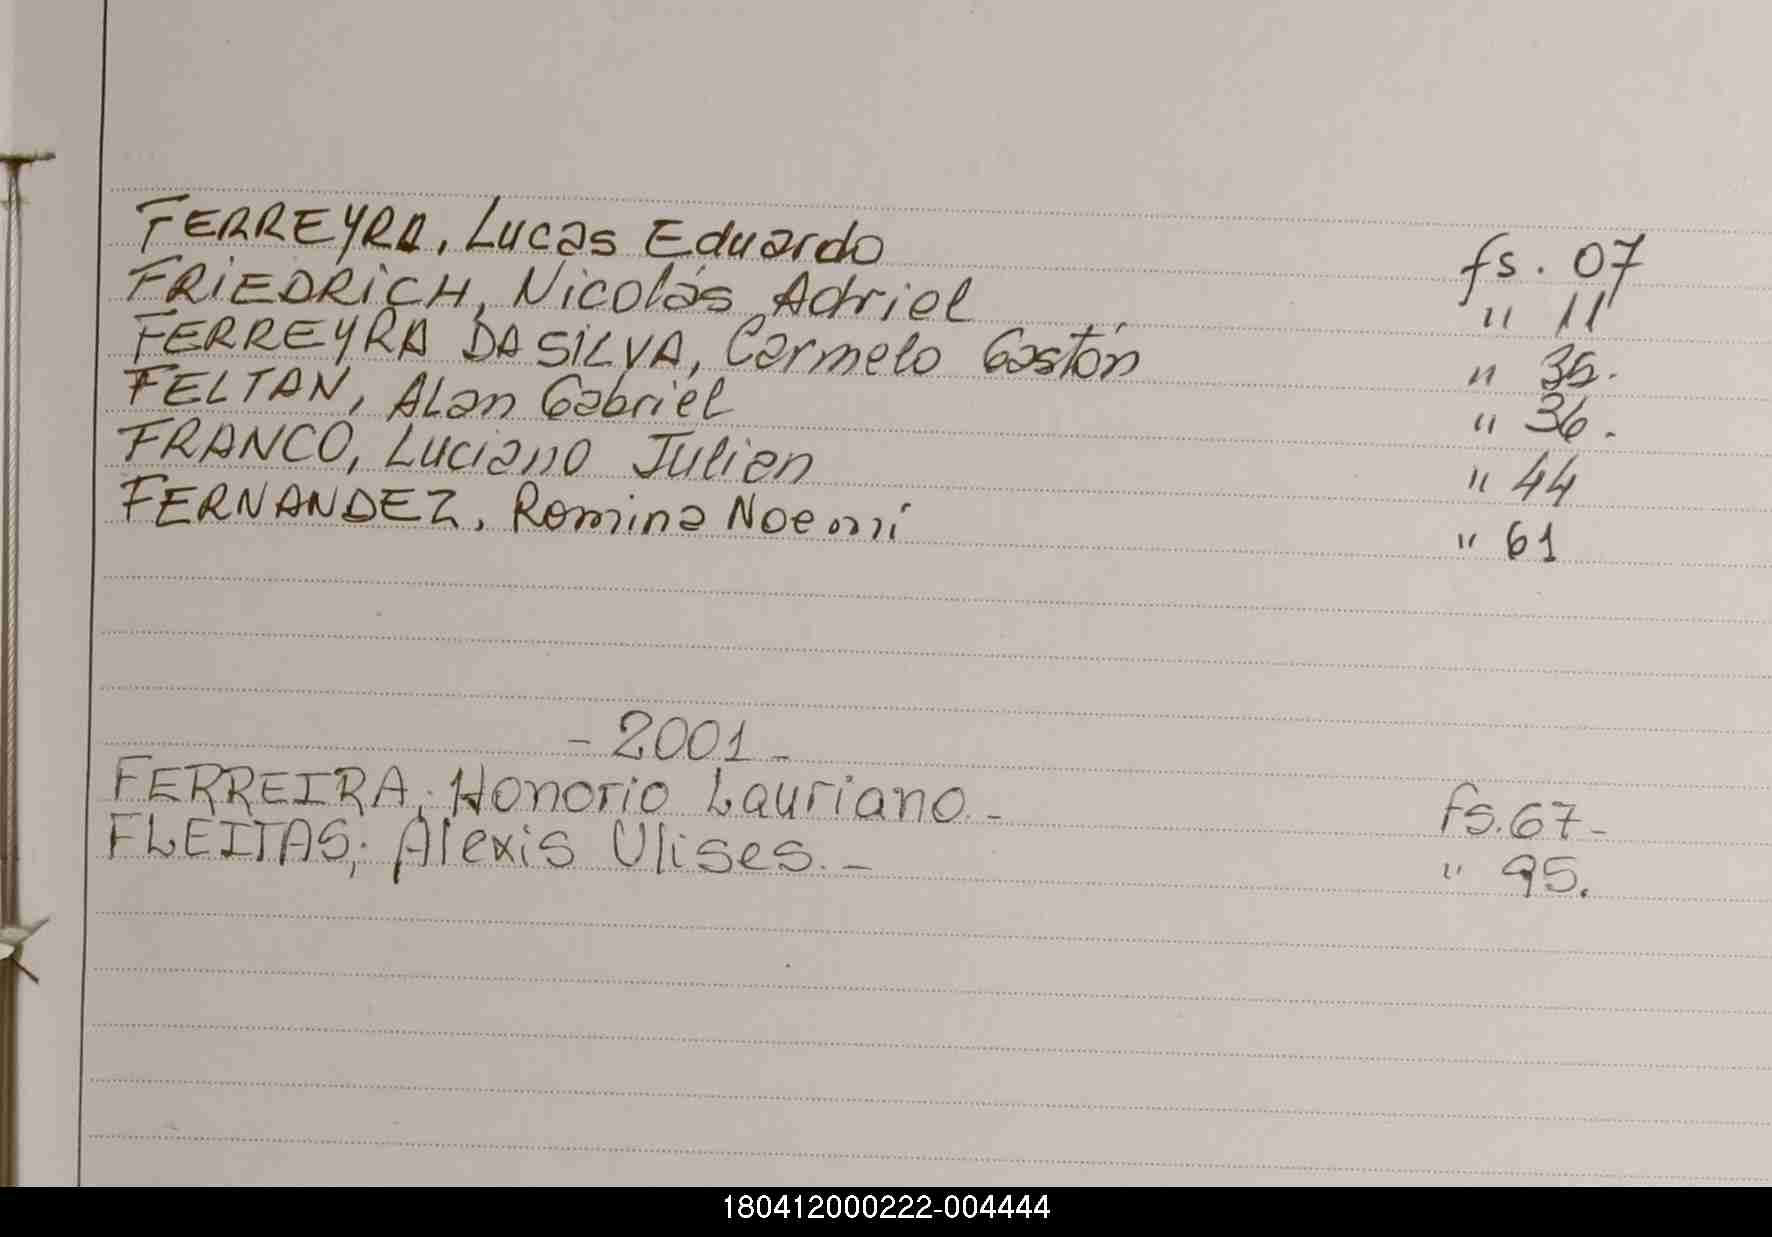 FERREYRA, Lucas Eduardo fs. 07
FRIEDRICH, Nicolás Adriel " 11
FERREYRA DA SILVA, Carmelo Gastón " 35.
FELTAN, Alan Gabriel " 36.
FRANCO, Luciano Julian " 44
FERNANDEZ, Romina Noemí " 61
- 2001 -
FERREIRA, Honorio Lauriano. - fs. 67-
FLEITAS; Alexis Ulises. - " 95.
180412000222-004444